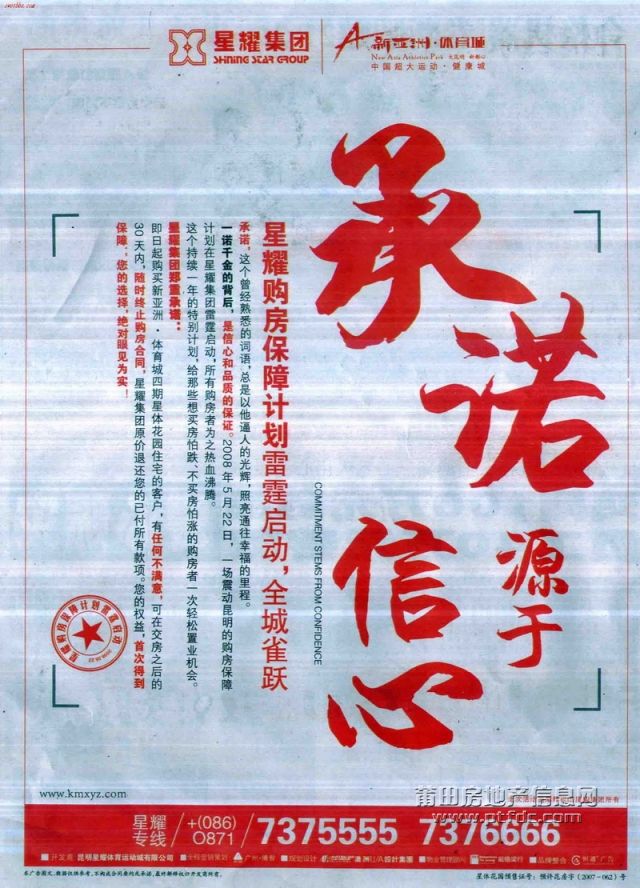 星耀集团
SHINING STAR GROUP
新亚洲·体育城
New Asia Athletics Park
中国超大运动·健康城
承诺
源于
信心
COMMITMENT STEMS FROM CONFIDENCE
星耀购房保障计划雷霆启动，全城雀跃
承诺，这个曾经熟悉的词语，总是以他逼人的光辉，照亮通往幸福的里程。
一诺千金的背后，是信心和品质的保证。2008年5月22日，一场震动昆明的购房保障
计划在星耀集团雷霆启动，所有购房者为之热血沸腾。
这个持续一年的特别计划，给那些想买房怕跌、不买房怕涨的购房者一次轻松置业机会。
星耀集团郑重承诺：
即日起购买新亚洲·体育城四期星体花园住宅的客户，有任何不满意，可在交房之后的
30天内，随时终止购房合同，星耀集团原价退还您的已付所有款项。您的权益，首次得到
保障；您的选择，绝对眼见为实！
星耀购房保障计划雷霆启动
www.kmxyz.com
莆田房地产信息网
www.ptfdc.com
星耀
专线
+(086)
0871
7375555 7376666
开发商 昆明星耀体育运动城有限公司
规划设计
物业管理顾问
品牌整合
本广告图文、数据仅供参考，不构成合同要约或承诺，最终解释权归开发商所有。
星体花园预售证号：预许花房字(2007-062)号